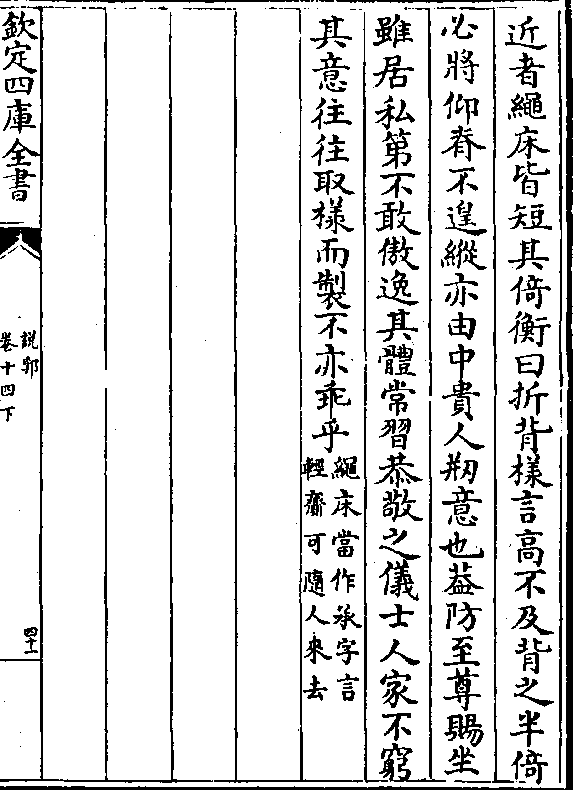 近者繩床皆短其倚衡曰折背様言髙不及背之半倚
必將仰脊不遑縱亦由中貴人刱意也葢防至尊賜坐
雖居私第不敢傲逸其體常習恭敬之儀士人家不窮
其意往往取様而製不亦乖乎繩床當作承字言
輕齋可隨人來去
欽定四庫全書
説郛
卷十四下
四十一